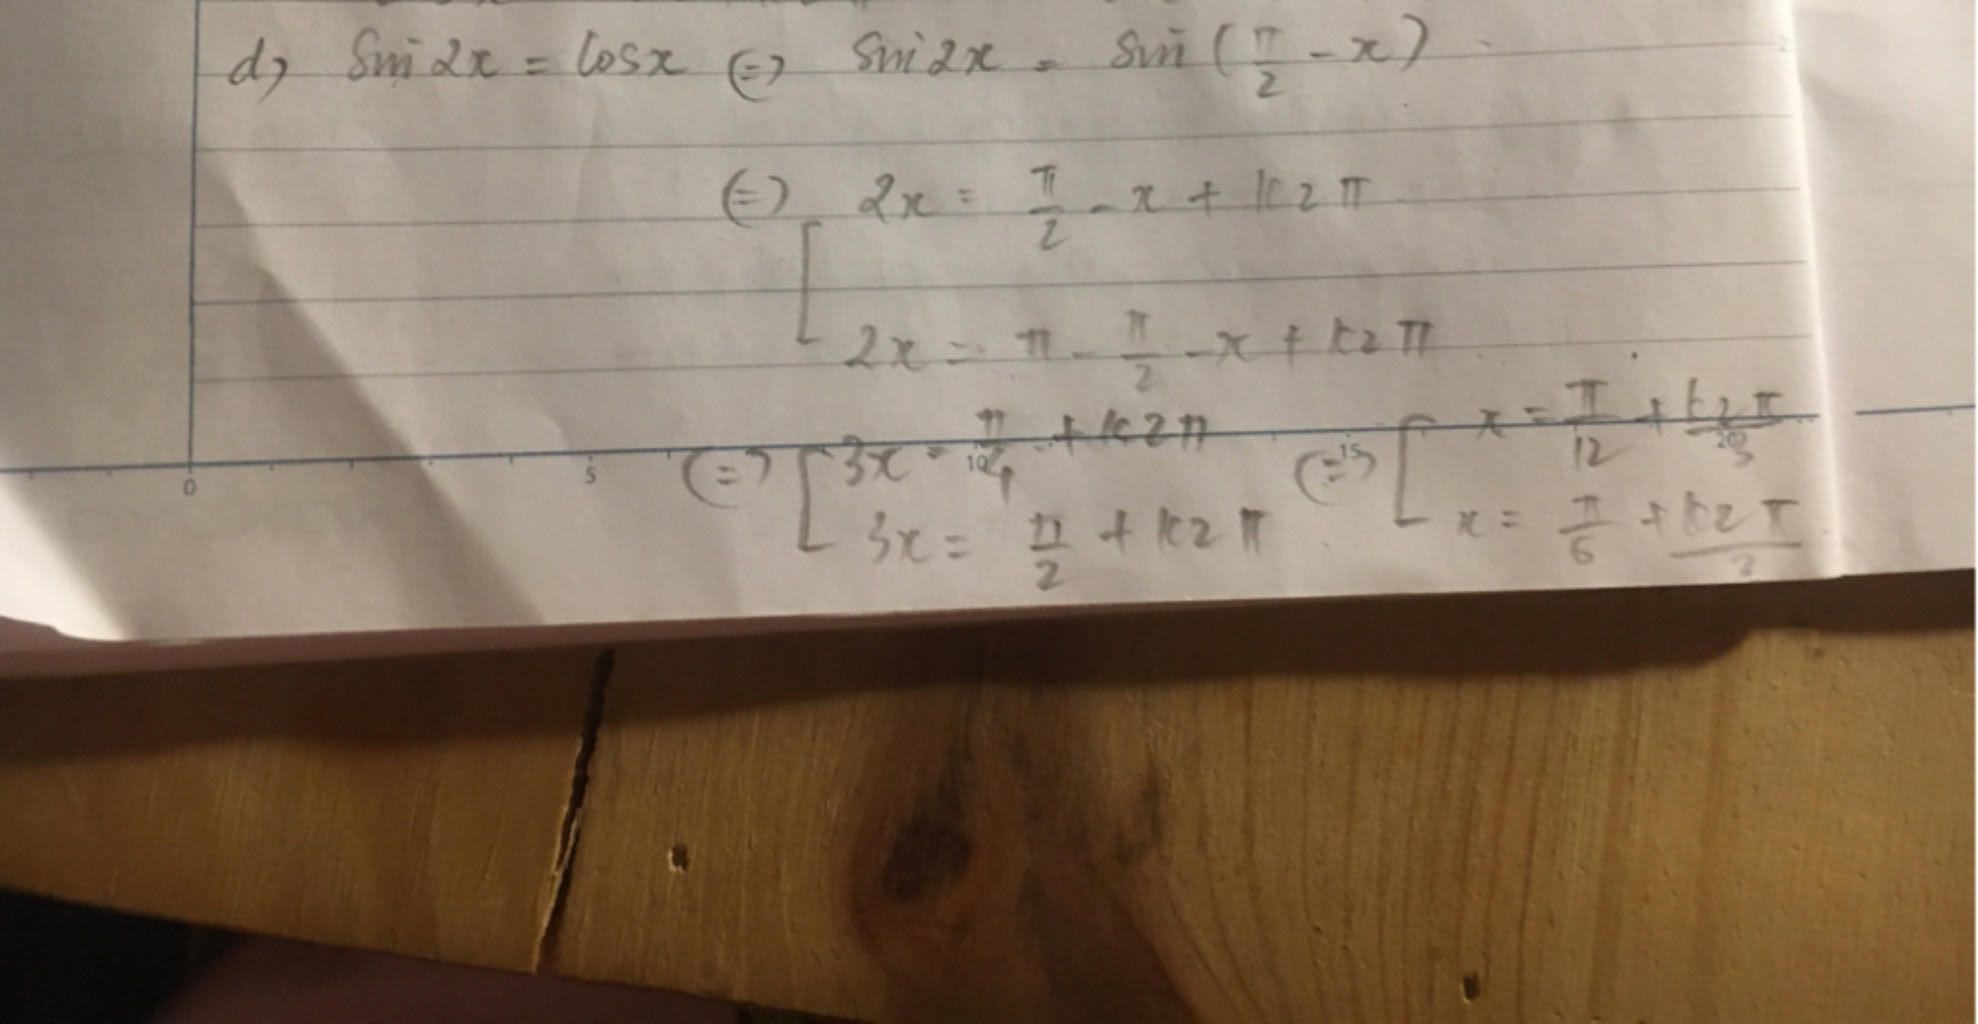 d) Sin2x = Cosx (=) Sin2x = Sin(π/2 - x)
(=) [ 2x = π/2 - x + k2π
2x = π - π/2 - x + k2π
(=) [ 3x = π/4 + k2π (=) [ x = π/12 + k2π/3
3x = π/2 + k2π x = π/6 + k2π/3
0 5 10 15 20